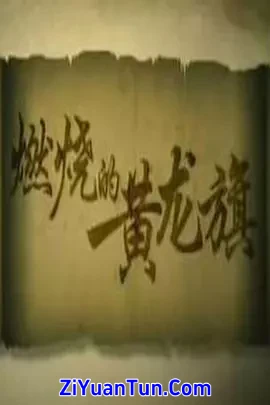 燃烧的
黄龙旗
ZiYuanTun.Com